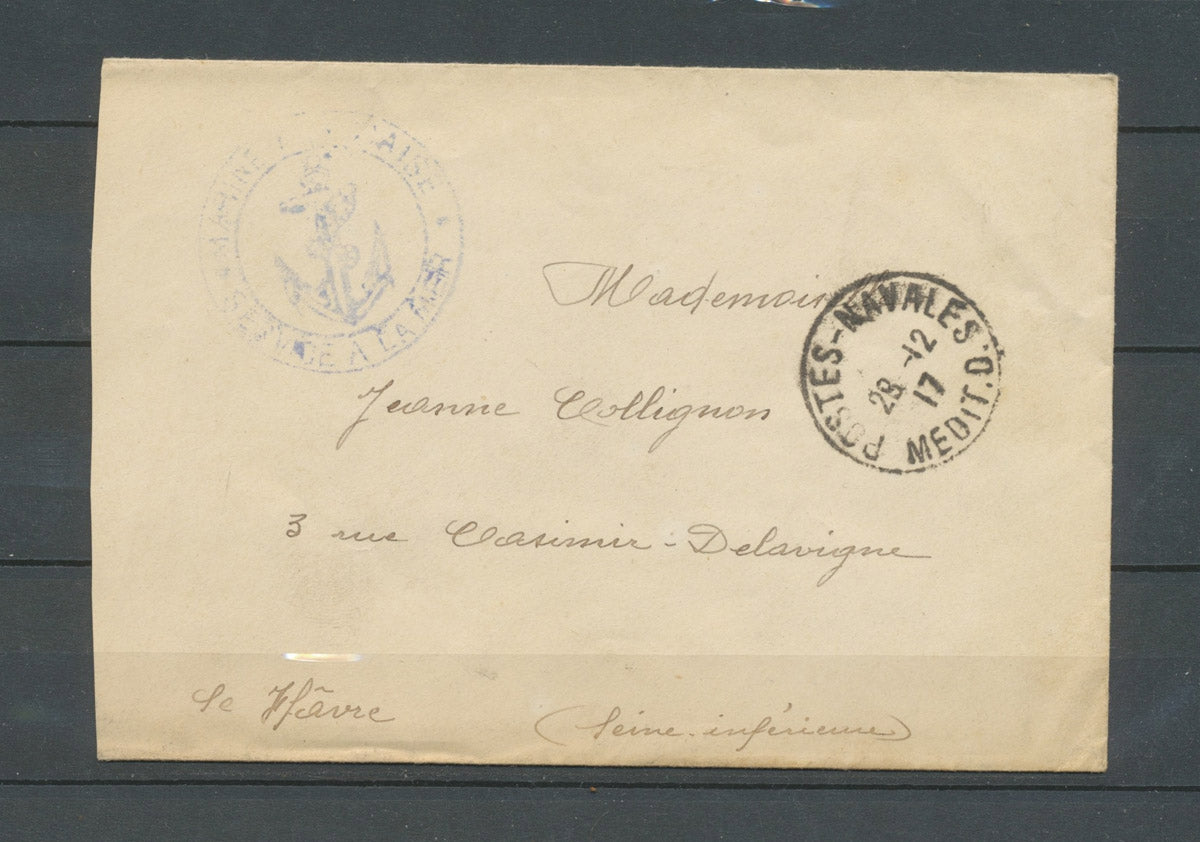 MARINE FRANÇAISE
SERVICE A LA MER
POSTES-NAVALES
28 -12
17
MEDIT.O.
Mademois
Jeanne Collignon
3 rue Casimir-Delavigne
Le Hâvre
(Seine-inférieure)